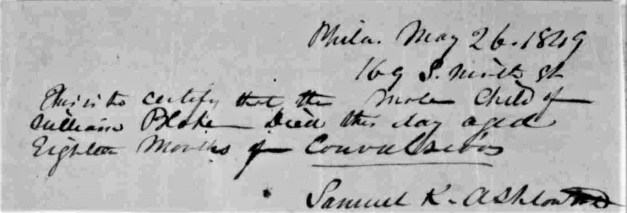 Phila. May 26. 1849
169 S. Ninth St
This is to certify that the Male Child of
William Blake Died this day aged
Eighteen Months of Convulsions
Samuel K. Ashton MD